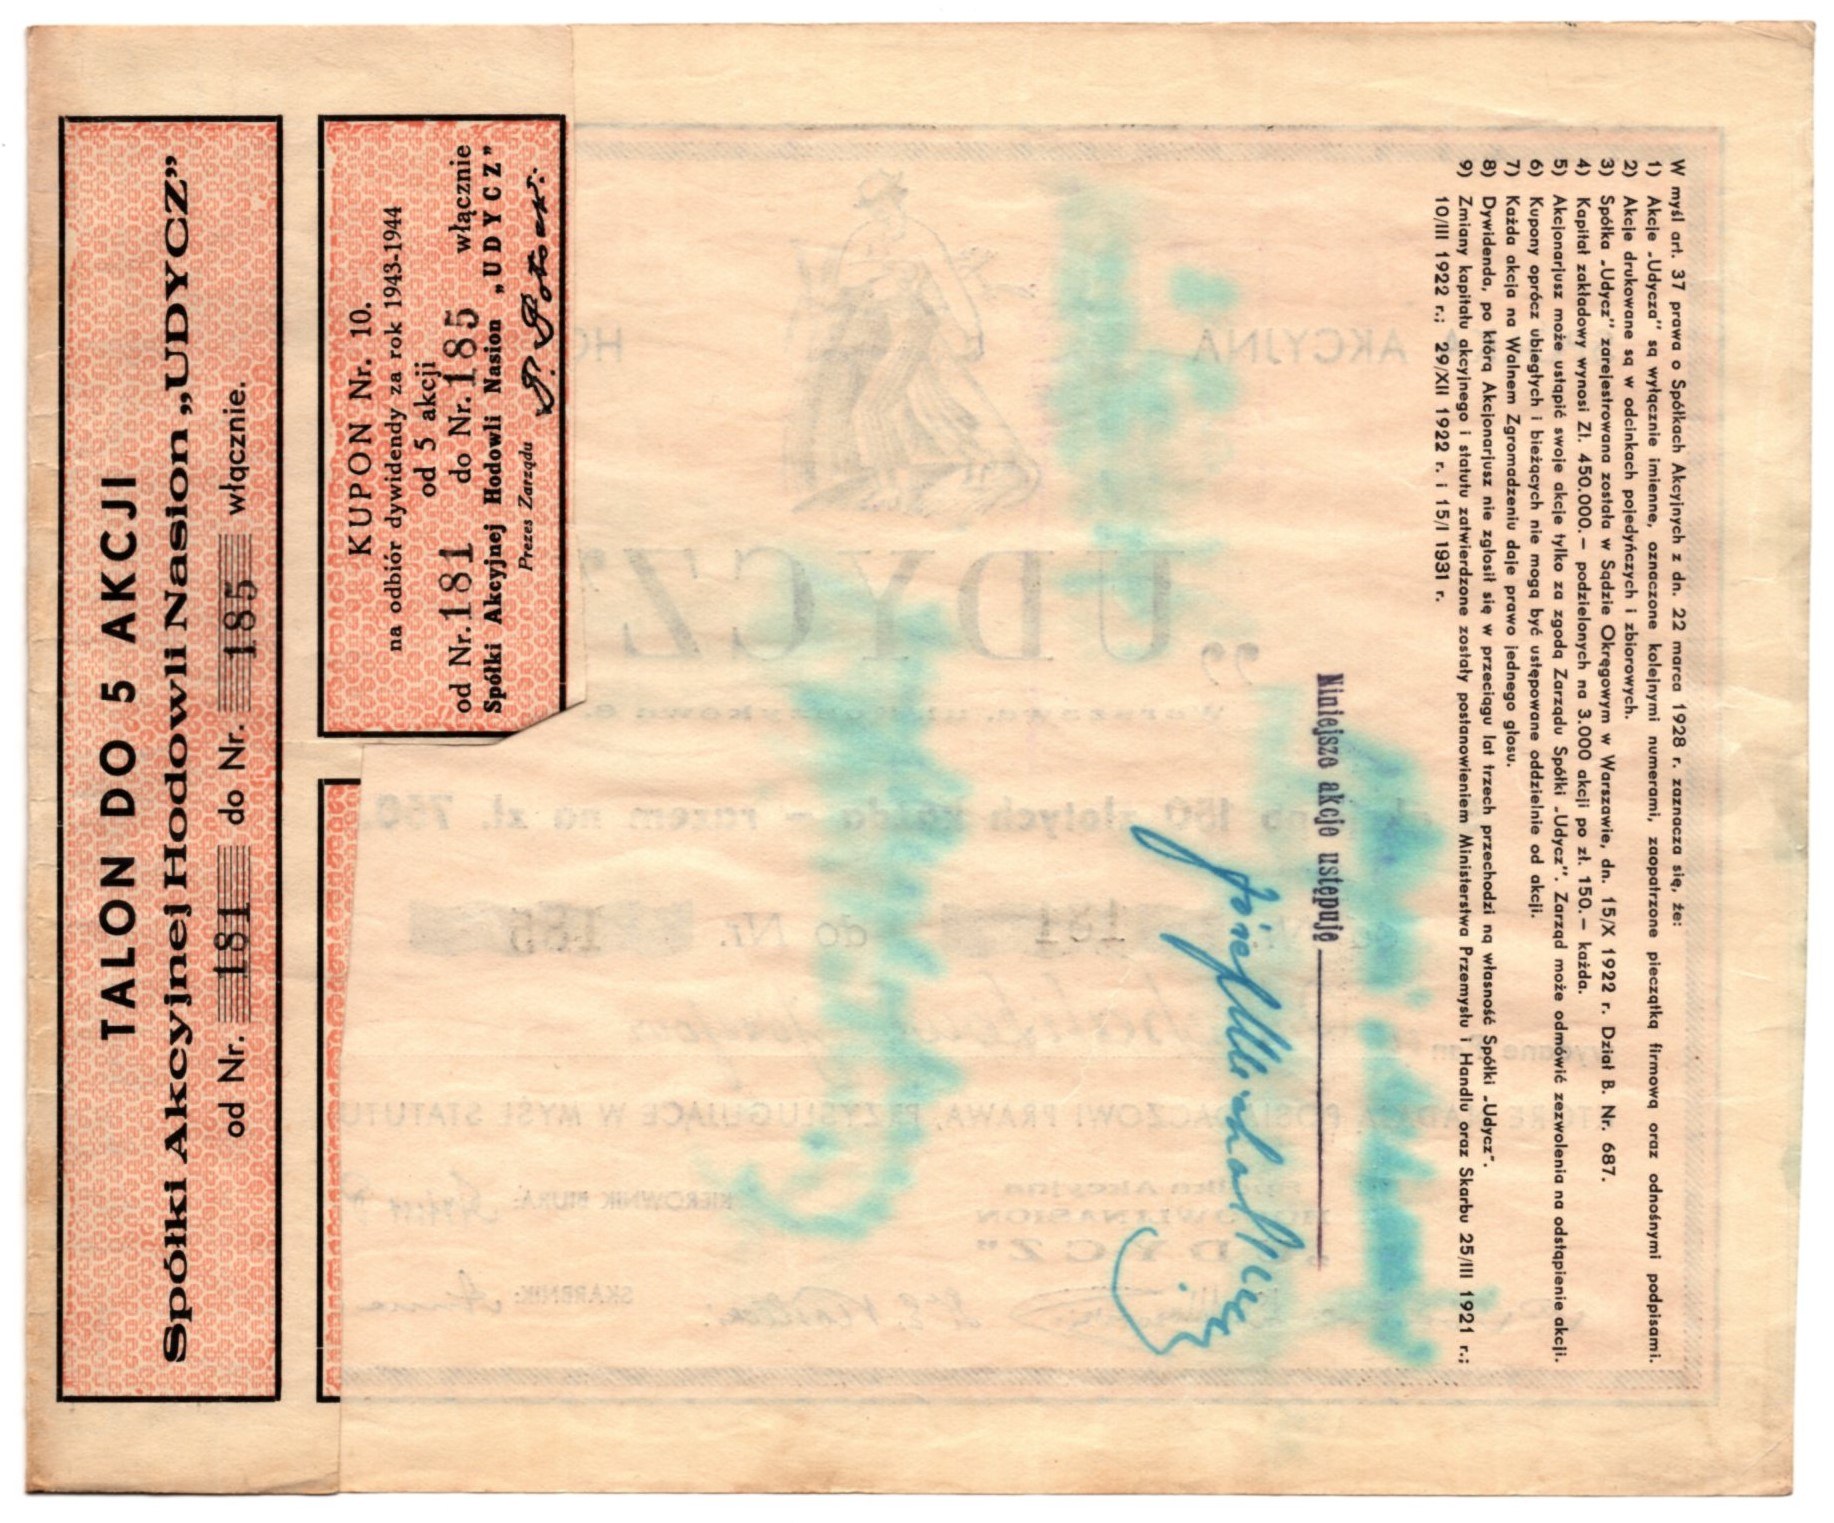 TALON DO 5 AKCJI
Spółki Akcyjnej Hodowli Nasion „UDYCZ”
od Nr. 181 do Nr. 185 włącznie.
KUPON Nr. 10.
na odbiór dywidendy za rok 1943-1944
od 5 akcji
od Nr. 181 do Nr. 185 włącznie
Spółki Akcyjnej Hodowli Nasion „UDYCZ”
Prezes Zarządu
W myśl art. 37 prawa o Spółkach Akcyjnych z dn. 22 marca 1928 r. zaznacza się, że:
1) Akcje „Udycza” są wyłącznie imienne, oznaczone kolejnymi numerami, zaopatrzone pieczątką firmową oraz odnośnymi podpisami.
2) Akcje drukowane są w odcinkach pojedyńczych i zbiorowych.
3) Spółka „Udycz” zarejestrowana została w Sądzie Okręgowym w Warszawie, dn. 15/X 1922 r. Dział B. Nr. 687.
4) Kapitał zakładowy wynosi Zł. 450.000.— podzielonych na 3.000 akcji po zł. 150.— każda.
5) Akcjonarjusz może ustąpić swoje akcje tylko za zgodą Zarządu Spółki „Udycz”. Zarząd może odmówić zezwolenia na odstąpienie akcji.
6) Kupony oprócz ubiegłych i bieżących nie mogą być ustępowane oddzielnie od akcji.
7) Każda akcja na Walnem Zgromadzeniu daje prawo jednego głosu.
8) Dywidenda, po którą Akcjonarjusz nie zgłosił się w przeciągu lat trzech przechodzi na własność Spółki „Udycz”.
9) Zmiany kapitału akcyjnego i statutu zatwierdzone zostały postanowieniem Ministerstwa Przemysłu i Handlu oraz Skarbu 25/III 1921 r.;
10/III 1922 r.; 29/XII 1922 r. i 15/I 1931 r.
Niniejsze akcje ustępuję